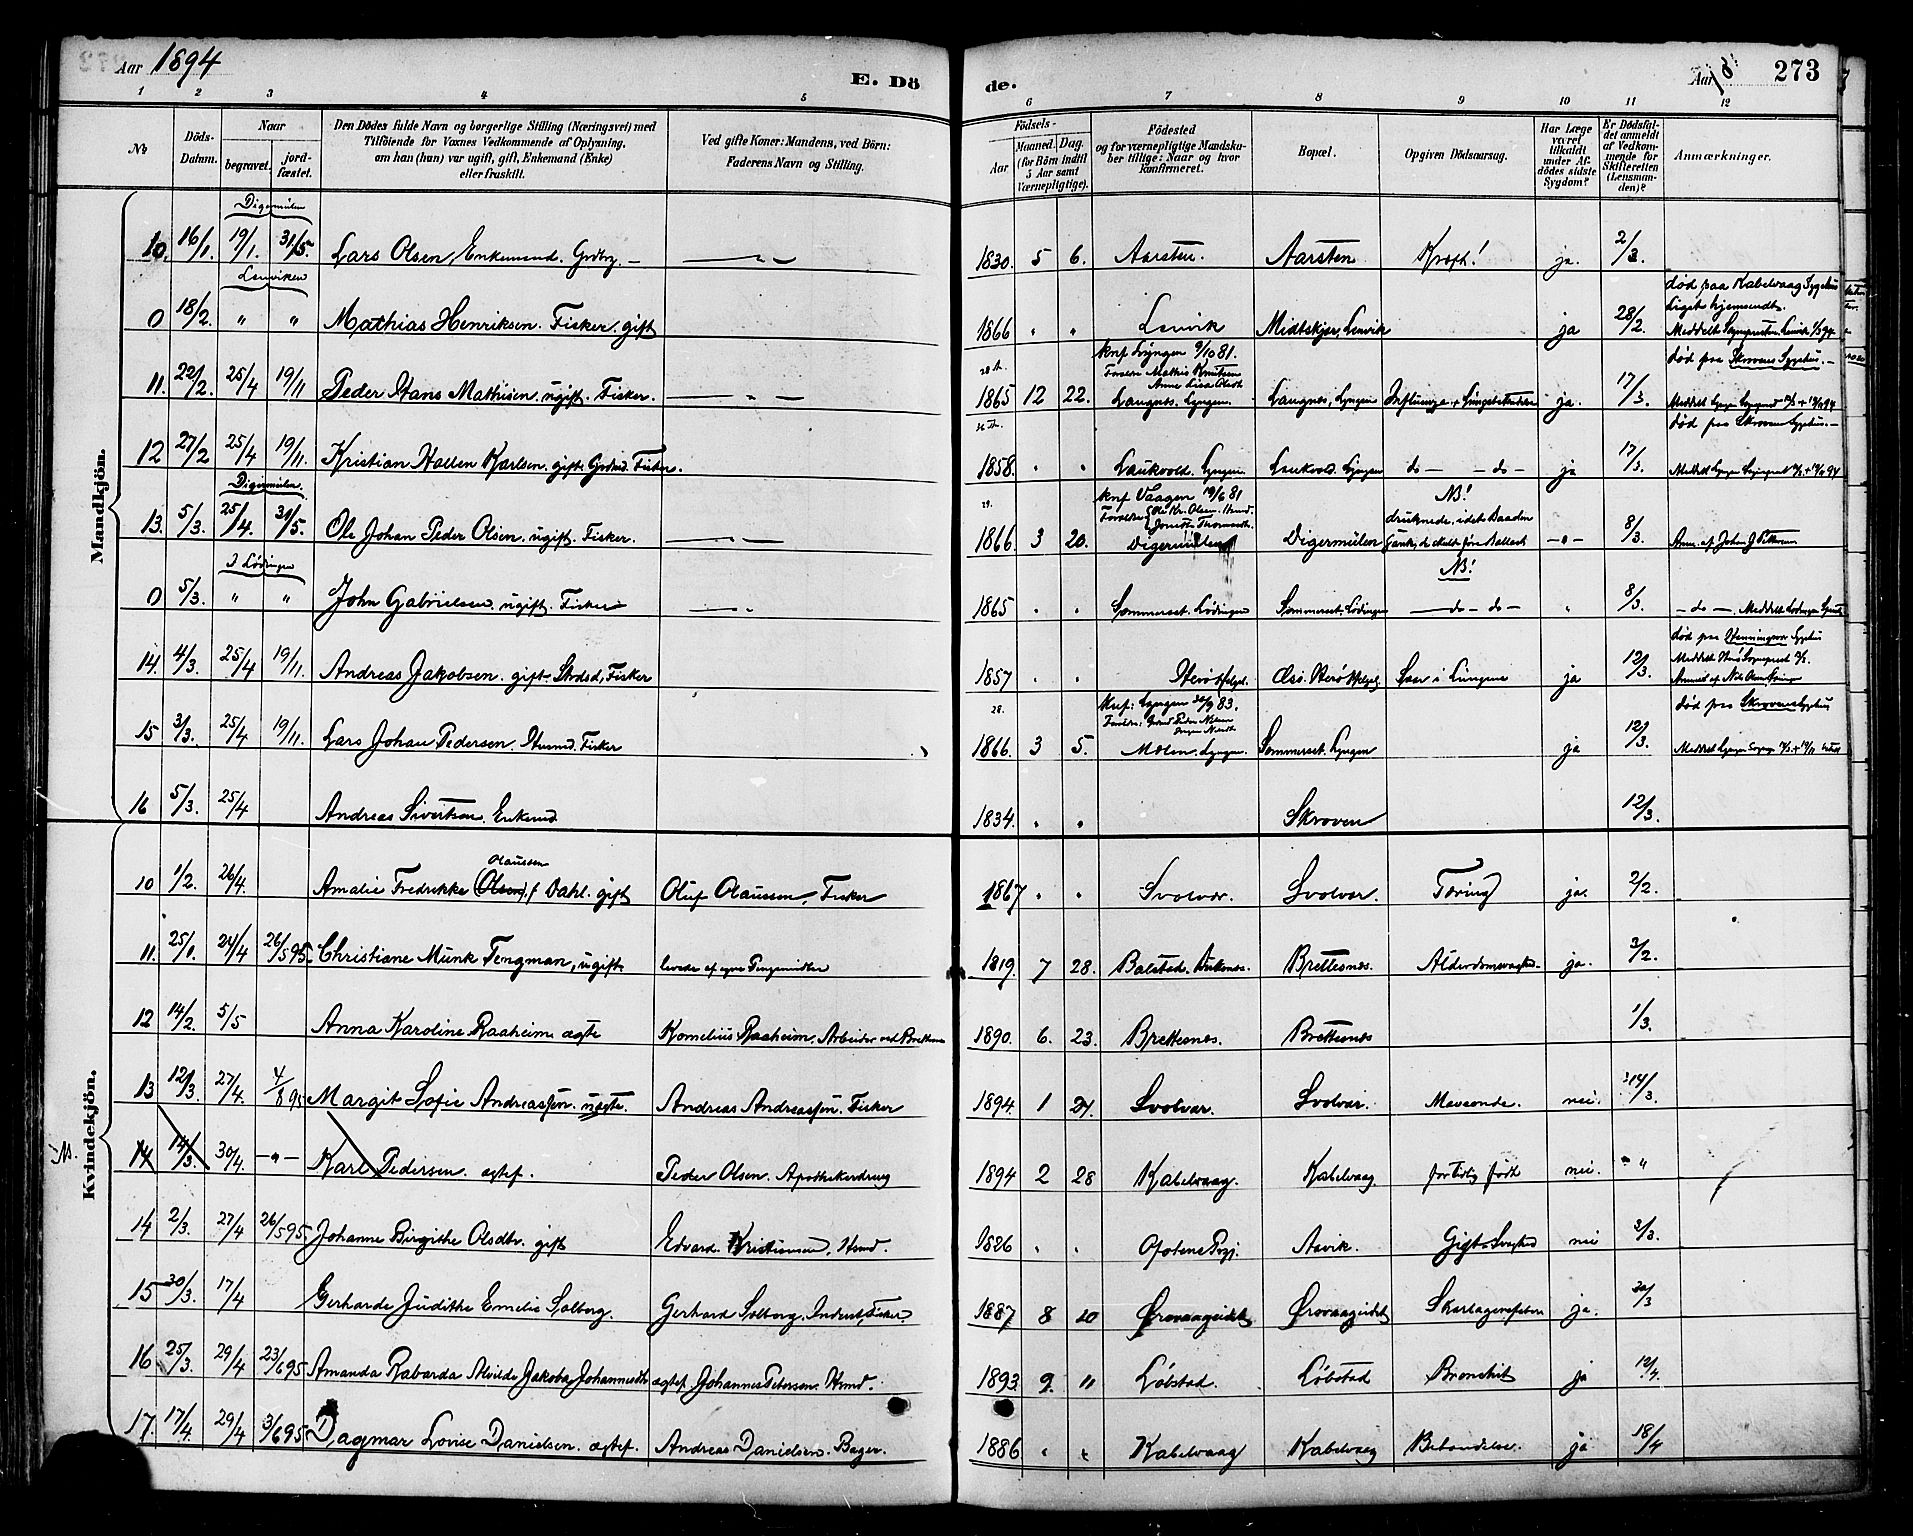 Aar 1894
E. Dö
de.
Aar 18
273
1 2 3 4 5 6 7 8 9 10 11 12
No
Döds-Datum.
Naar
begravet.
jord-fæstet.
Den Dödes fulde Navn og borgerlige Stilling (Næringsvei) med
Tilföiende for Voxnes Vedkommende af Oplysning,
om han (hun) var ugift, gift, Enkemand (Enke)
eller fraskilt.
Ved gifte Koner: Mandens, ved Börn:
Faderens Navn og Stilling.
Födsels-
Aar
Maaned. Dag.
(for Börn indtil
5 Aar samt
Værnepligtige).
Födested
og for værnepligtige Mandska-
ber tillige: Naar og hvor
konfirmeret.
Bopæl.
Opgiven Dödsaarsag.
Har Læge
været
tilkaldt
under Af-
dödes sidste
Sygdom?
Er Dödsfal-
det anmeldt
af Vedkom-
mende for
Skifteretten
(Lensman-
den)?
Anmærkninger.
Mandkjön.
Digermulen
10. 16/1. 19/1. 31/5. Lars Olsen, Enkemand. — 1830. 5 6. Aarsten. Aarsten ja. 2/3.
Lenviken
0 18/2. " " Mathias Henriksen. Fisker, gift 1866 " " Lenvik Midtskjer, Lenvik ja 28/2. død paa Kabelvaag Sygehus
Liget hjemsendt.
knf Lyngen 9/10 81.
død paa Skrovens Sygehus. —
11. 22/2. 25/4 19/11 Peder Hans Mathisen. ugift. Fisker. 1865 12 22. Langnes, Lyngen Langnes, Lyngen Influenza + Lungebetændelse ja. 17/3.
død paa Skroven Sygehus. —
12 27/2 25/4 19/11. Kristian Hallen Karlsen. gift. Fisker. 1858. " " Laukvold. Lyngen Laukvold. Lyngen do — — do — ja 17/3.
Digermulen
knf Vaagen 19/6 81 NB!
13. 5/3. 25/4. 31/5. Ole Johan Peder Olsen. ugift. Fisker. 1866. 3 20. Digermulen Digermulen druknede, idet Baaden — " — 8/3.
I Lödingen
NB!
0 5/3. " " John Gabrielsen. ugift. Fisker 1865 " " Sommerset. Lödingen Sommerset. Lödingen — do — do — " 8/3. — do —. Meddelt Lödingen
død paa Henningsvær Sygehus
14. 4/3. 25/4 19/11. Andreas Jakobsen. gift. Fisker 1857 " " Herö Helgel. Herö Helgel. Saar i Lungerne ja 12/3.
28.
Knf: Lyngen 30/9 83.
død paa Skrovens Sygehus
15 3/3. 25/4 19/11. Lars Johan Pedersen. Husmd. Fisker 1866. 3 5. Molen. Lyngen. Sommerset. Lyngen ja 12/3.
16 5/3. 25/4 Andreas Sivertsen. Enkemd. 1834. " " Skroven 12/3.
Kvindekjön.
Olaussen
10 1/2. 26/4. Amalie Fredrikke Olsen, f Dahl. gift Oluf Olaussen, Fisker 1867 " " Svolvær. Svolvær Tæring ja. 2/2.
11. 25/1. 24/4 26/5 95. Christiane Munk Tengman, ugift levede af egne Pengemidler 1819. 7 28. Balstad. Buksnes. Brettesnes. Alderdomssvaghed. ja. 3/2.
12 14/2. 5/5 Anna Karoline Raaheim ægte Kornelius Raaheim, Arbeider ved Brettesnes 1890. 6. 23. Brettesnes. Brettesnes 1/3.
13 12/3. 27/4. 4/8 95 Margit Sofie Andreassen. uægte. Andreas Andreassen. Fisker 1894. 1 24. Svolvær. Svolvær. Mavesonde. nei. 14/3.
14 14/3. 30/4. —"— Karl Pedersen. ægtef. Peder Olsen. Apothekerdreng 1894 2 28 Kabelvaag. Kabelvaag for tidlig født nei. "
14 2/3. 27/4 26/5 95. Johanne Birgithe Olsdtr. gift Edvard Kristiansen, Hsmd. 1826 " " Ofotens Prgj. Aavik. Gigt-Svaghed nei 3/3.
15 30/3. 17/4 Gerharde Judithe Emelie Solborg. Gerhard Solborg. Inderst, Fisker. 1887. 8 20 Ørsvaageidet Ørsvaageidet Skarlagensfeber ja.
16 25/3. 29/4 23/6 95 Amanda Rabarda Alvilde Jakoba Johannesdtr ægtef. Johannes Petersen. Hsmd. 1893. 9. 11 Löbstad. Löbstad Bronchit ja 12/4.
17. 17/4. 29/4 3/6 95 Dagmar Lovise Danielsen. ægtef. Andreas Danielsen. Bager. 1886 " " Kabelvaag Kabelvaag ja 18/4